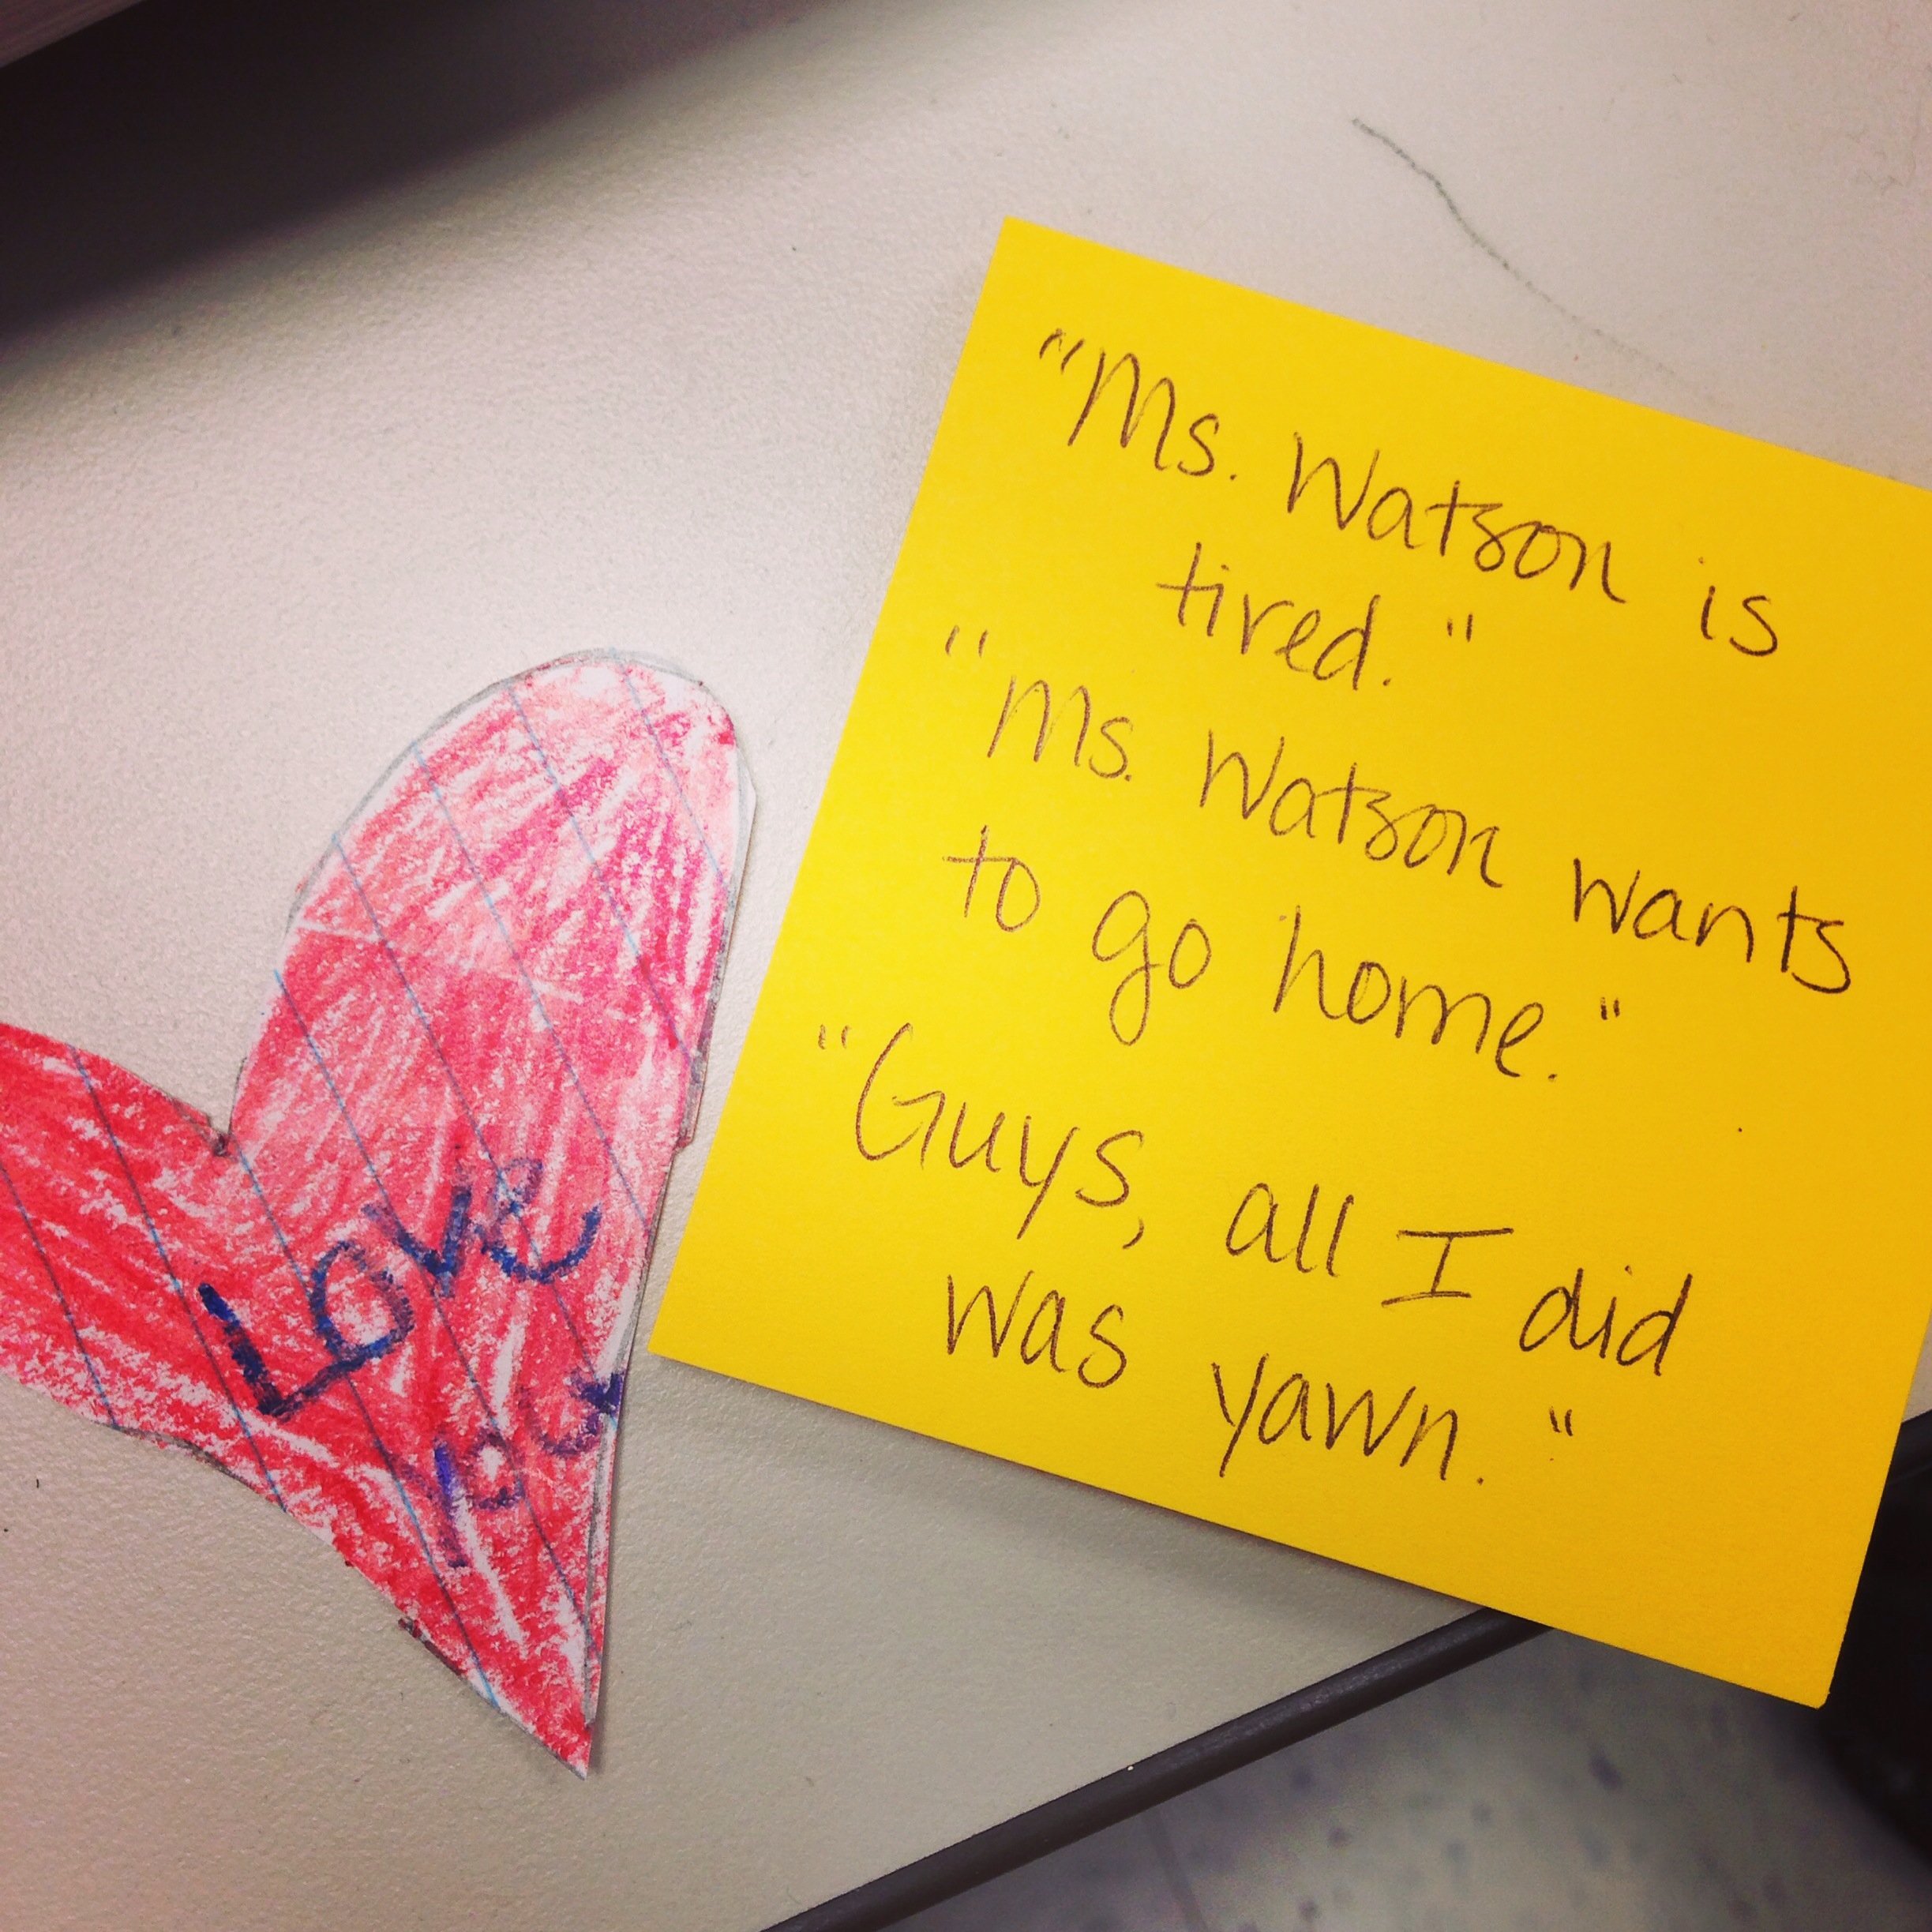 "Ms. Watson is
tired."
"Ms. Watson wants
to go home."
"Guys, all I did
was yawn."
Love
you